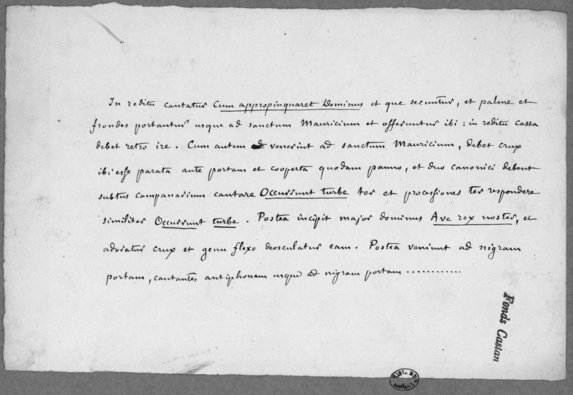 In reditu cantatur Cum appropinquaret Dominus et que secuntur, et palme et
frondes portantur usque ad sanctum Mauricium et offeruntur ibi : in reditu cassa
debet retro ire. Cum autem venerint ad sanctum Mauricium, debet crux
ibi esse parata ante portam et cooperta quodam panno, et duo canonici debent
subtus campanarium cantare Occurrunt turbe ter et processiones ter respondere
similiter Occurrunt turbe. Postea incipit major dominus Ave rex noster, et
adoratur crux et genu flexo deosculatur eam. Postea veniunt ad nigram
portam, cantantes antiphonam usque ad nigram portam ............
Fonds Castan